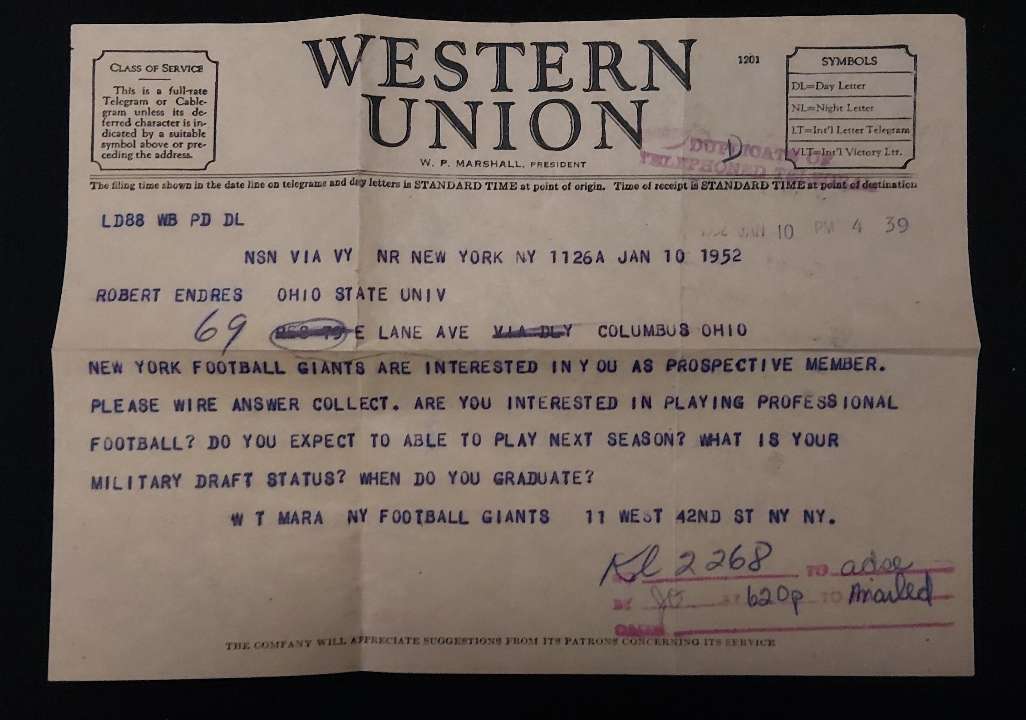 CLASS OF SERVICE
This is a full-rate
Telegram or Cable-
gram unless its de-
ferred character is in-
dicated by a suitable
symbol above or pre-
ceding the address.
WESTERN
UNION
W. P. MARSHALL, PRESIDENT
1201
SYMBOLS
DL=Day Letter
NL=Night Letter
LT=Int'l Letter Telegram
VLT=Int'l Victory Ltr.
D
DUPLICATE OF
TELEPHONED TELEGRAM
The filing time shown in the date line on telegrams and day letters is STANDARD TIME at point of origin. Time of receipt is STANDARD TIME at point of destination
LD88 WB PD DL
1952 JAN 10 PM 4 39
NSN VIA VY NR NEW YORK NY 1126A JAN 10 1952
ROBERT ENDRES OHIO STATE UNIV
69 E LANE AVE VIA DLY COLUMBUS OHIO
NEW YORK FOOTBALL GIANTS ARE INTERESTED IN YOU AS PROSPECTIVE MEMBER.
PLEASE WIRE ANSWER COLLECT. ARE YOU INTERESTED IN PLAYING PROFESSIONAL
FOOTBALL? DO YOU EXPECT TO ABLE TO PLAY NEXT SEASON? WHAT IS YOUR
MILITARY DRAFT STATUS? WHEN DO YOU GRADUATE?
W T MARA NY FOOTBALL GIANTS 11 WEST 42ND ST NY NY.
2268 TO adse
BY AT 620p TO Mailed
THE COMPANY WILL APPRECIATE SUGGESTIONS FROM ITS PATRONS CONCERNING ITS SERVICE